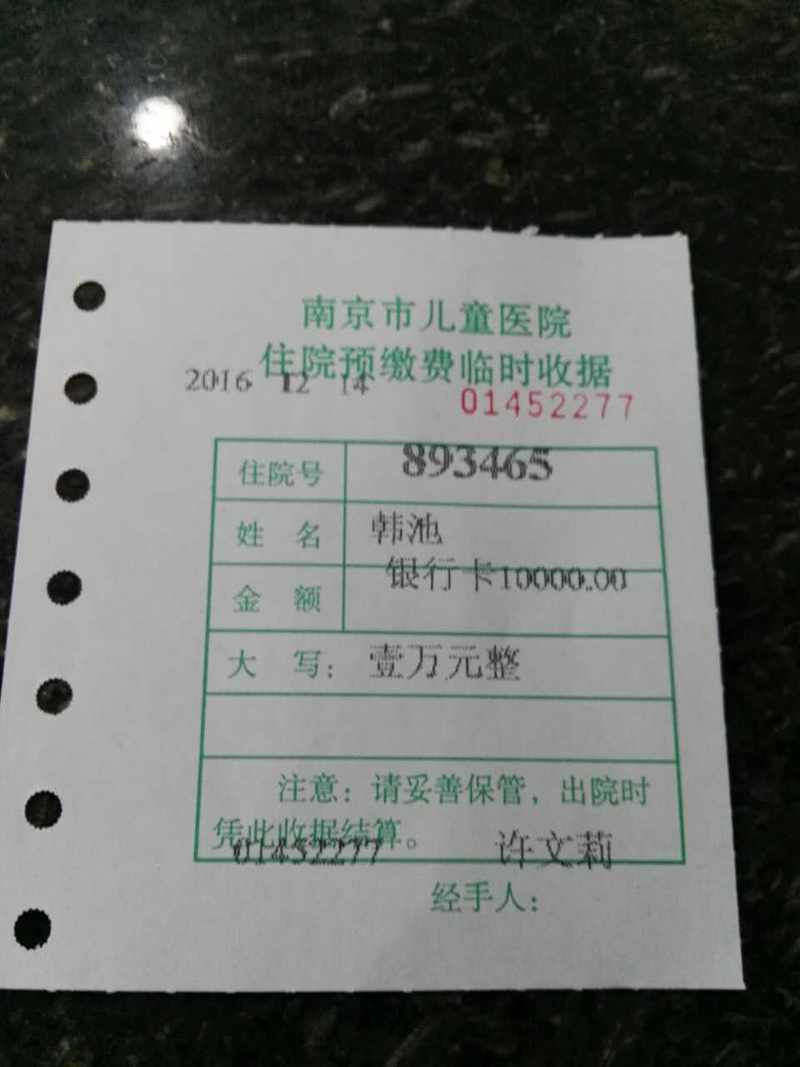 南京市儿童医院
住院预缴费临时收据
2016 12 14
01452277
住院号 893465
姓 名 韩池
金 额 银行卡10000.00
大 写: 壹万元整
注意:请妥善保管,出院时
凭此收据结算。
01452277 许文莉
经手人: